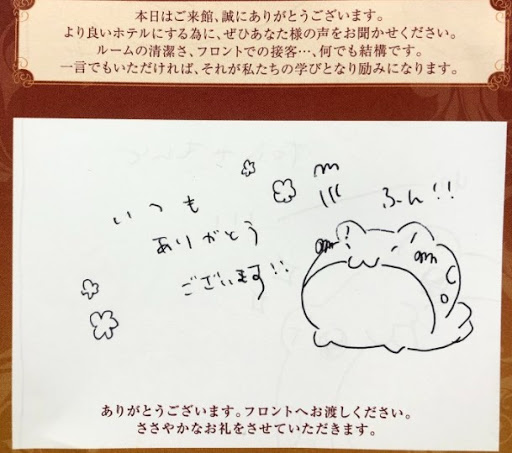 本日はご来館、誠にありがとうございます。
より良いホテルにする為に、ぜひあなた様の声をお聞かせください。
ルームの清潔さ、フロントでの接客…、何でも結構です。
一言でもいただければ、それが私たちの学びとなり励みになります。
いつも
ありがとう
ございます!!
ふーん!!
ありがとうございます。フロントへお渡しください。
ささやかなお礼をさせていただきます。